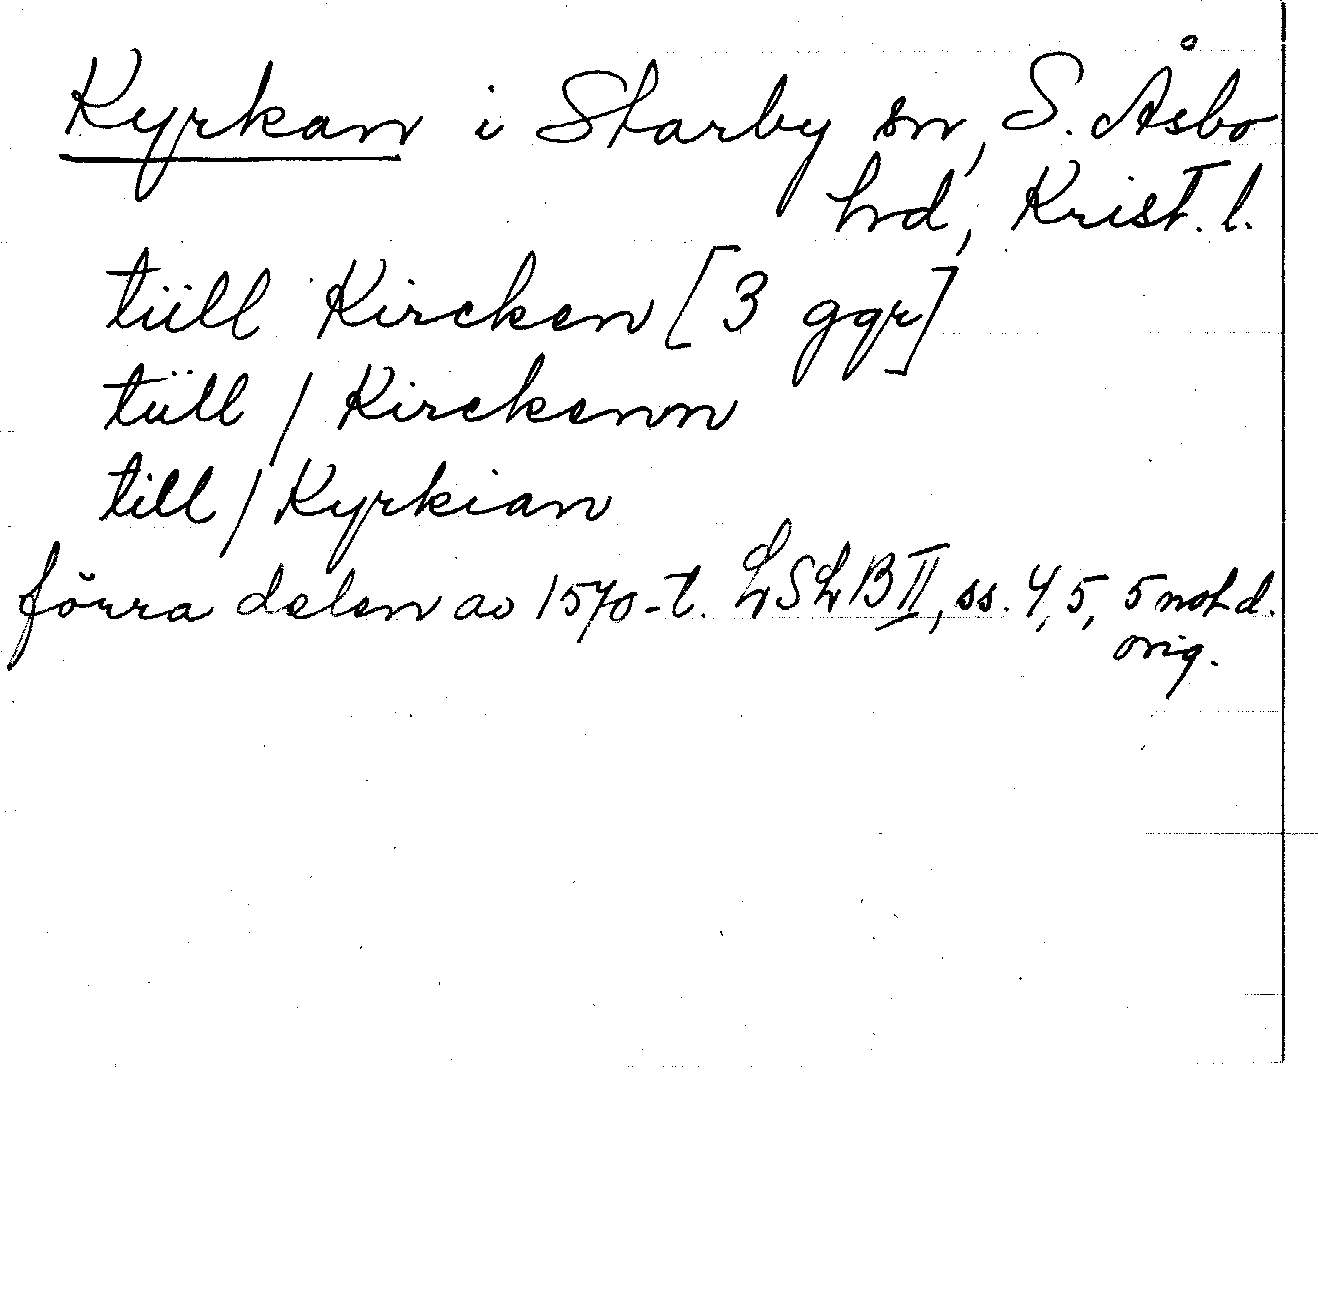 Kyrkan i Starby sn, S. Åsbo
hrd, Krist. l.
tüll Kircken [3 ggr]
tüll / Kirckenn
till / Kyrkian
förra delen av 1570-t. LSLB II, ss. 4, 5, 5 not d.
orig.